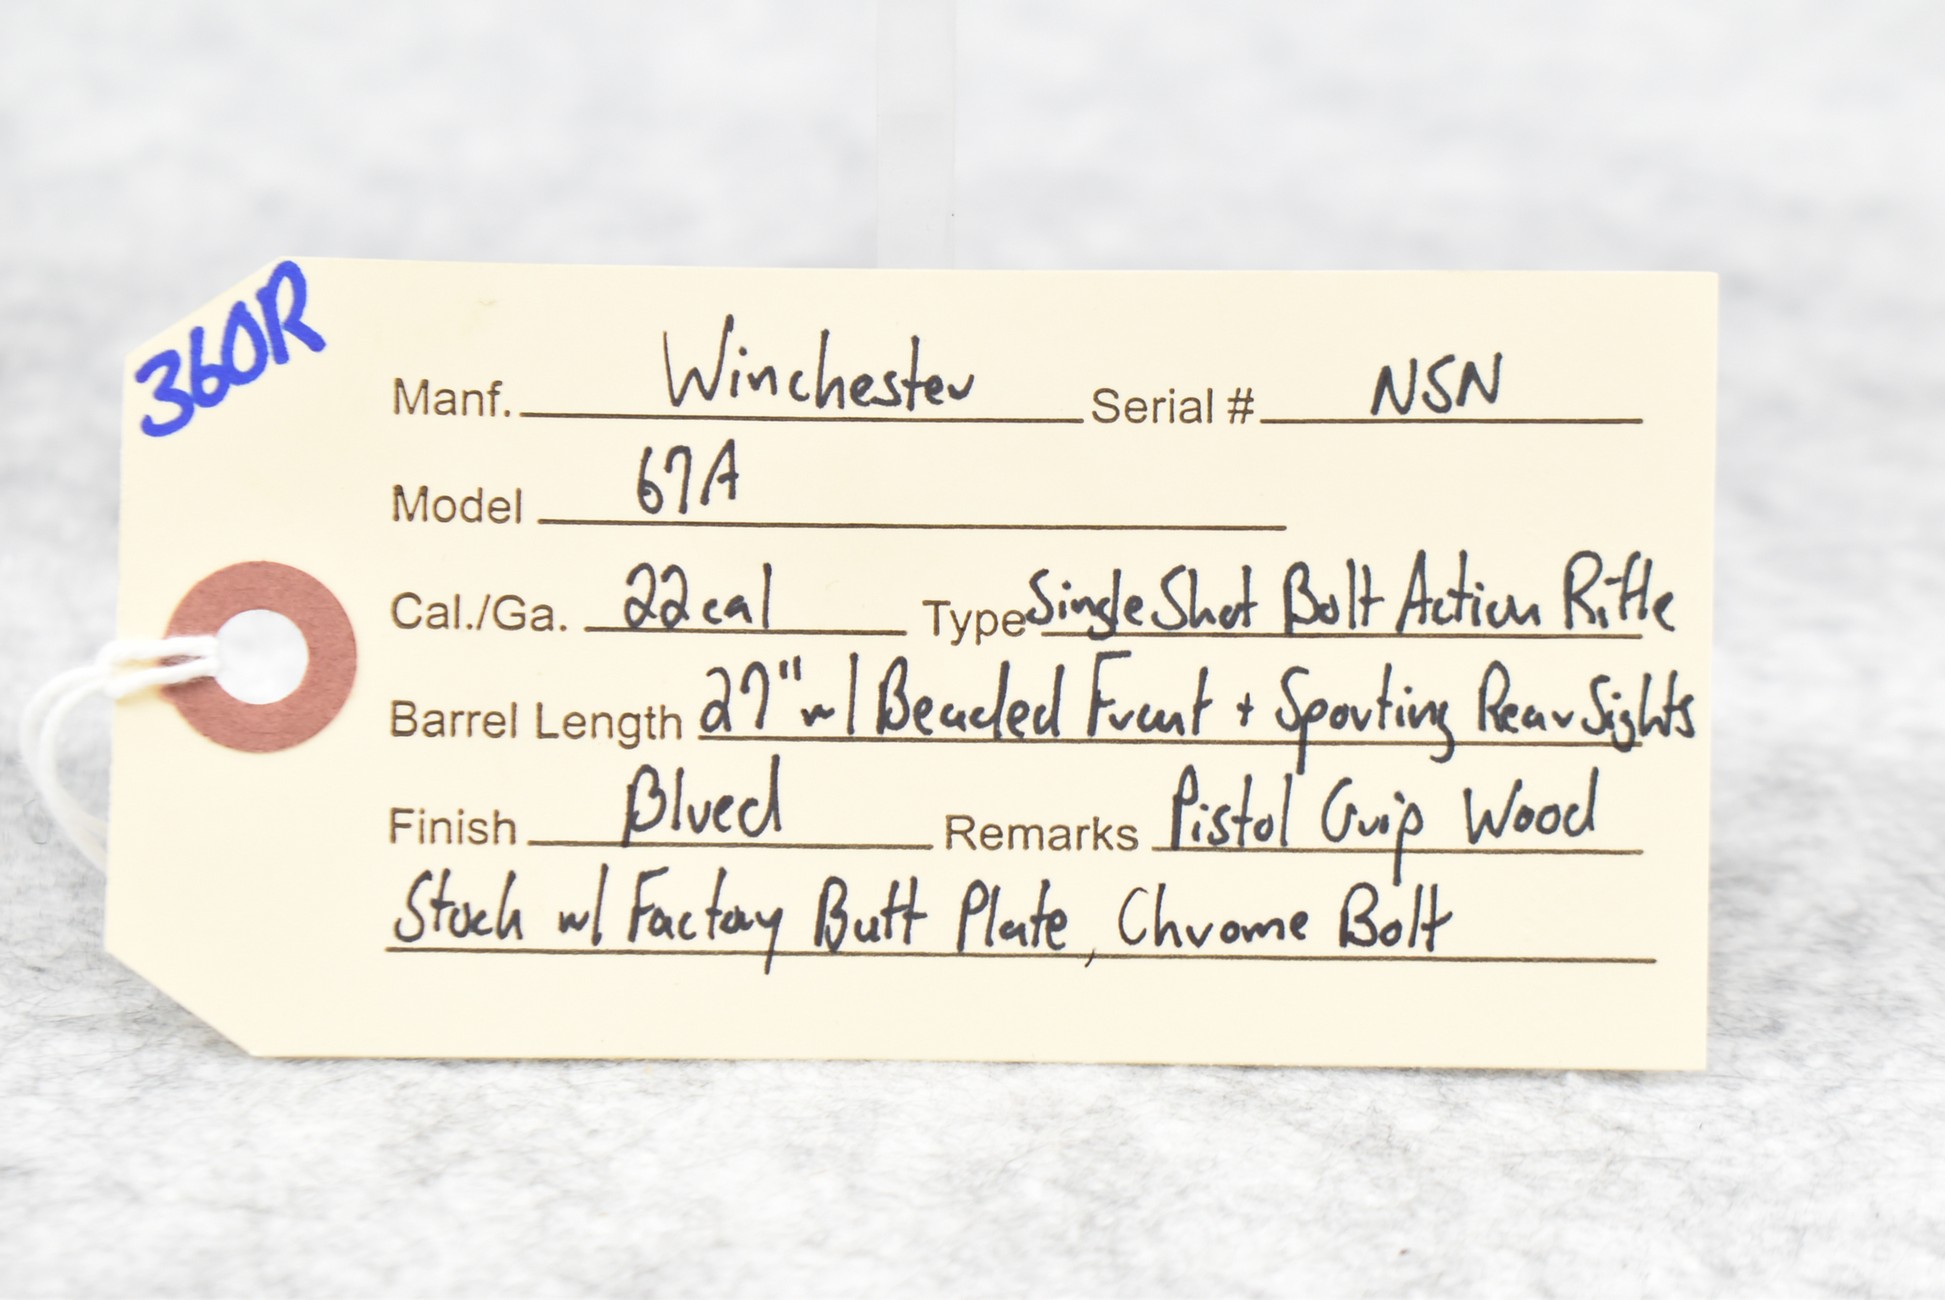 360R
Manf. Winchester Serial # NSN
Model 67A
Cal./Ga. 22cal Type Single Shot Bolt Action Rifle
Barrel Length 27" w/ Beaded Front + Sporting Rear Sights
Finish Blued Remarks Pistol Grip Wood
Stock w/ Factory Butt Plate, Chrome Bolt